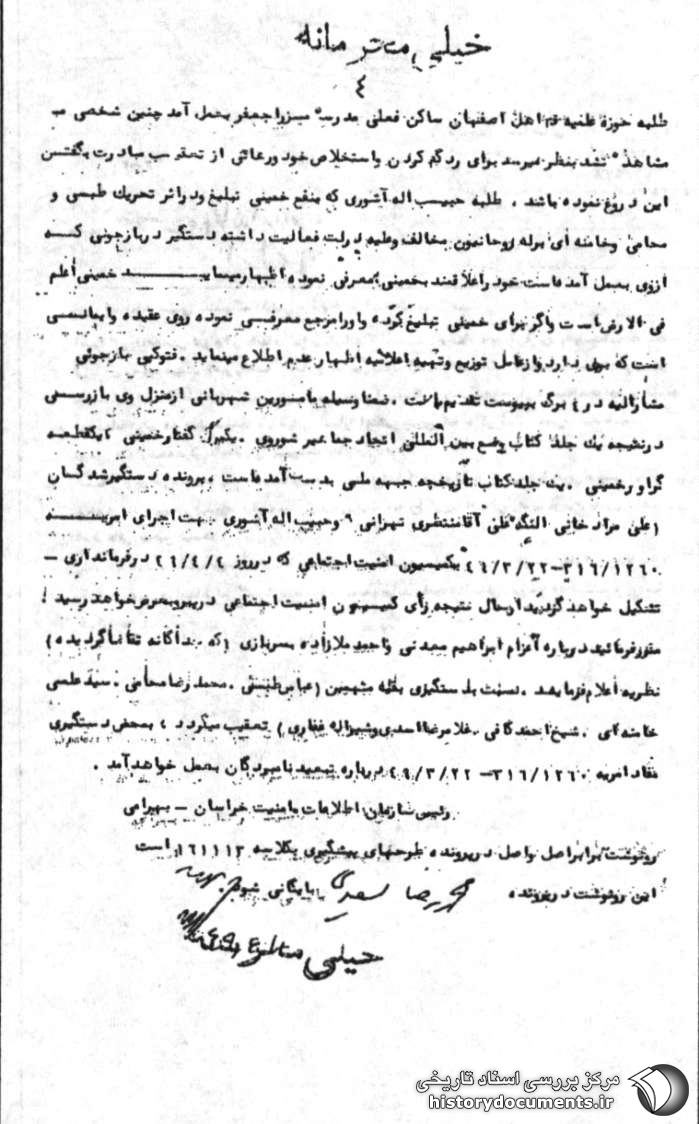 خیلی محرمانه
٤
طلبه حوزه علمیه قم اهل اصفهان ساکن فعلی مدرسه میرزا جعفر بعمل آمد چنین شخصی
مشاهده نشد بنظر میرسد برای رد گم کردن و استخلاص خود و رهائی از تعقیب مبادرت بگفتن
این دروغ نموده باشد . طلبه حبیب اله آشوری که بنفع خمینی تبلیغ و در اثر تحریک طبسی و
محامی و خامنه ای برله روحانیون مخالف وعلیه دولت فعالیت داشته دستگیر در بازجوئی کـــه
ازوی بعمل آمده است خود را علاقمند بخمینی معرفی نموده اظهار مینمایـــــد خمینی اعلم
فی الارض است و اگر برای خمینی تبلیغ کرده و او را مرجع معرفـــی نموده روی عقیده و ایمانـــی
است که بوی دارد و از عامل توزیع و تهیه اعلامیه اظهار عدم اطلاع مینماید . فتوکپی بازجوئی
مشارالیه در ٤ برگ بپیوست تقدیم است . ضمنا وسیله مامورین شهربانی از منزل وی بازرســـی
درنتیجه یک جلد کتاب وضع بین المللی اتحاد جماهیر شوروی . یکبرگ گفتار خمینی ، یکقطعـه
گراور خمینی . یک جلد کتاب تاریخچه جبهه ملی بدست آمده است . پرونده دستگیرشدگــان
(علی مراد خانی النگه علی آقا منتظری تهرانی و حبیب اله آشوری جهت اجرای امریـــــه
٣١٦/١٢٦٠-٤٦/٣/٢٢ بکمیسیون امنیت اجتماعی که در روز ٤٦/٤/٤ در فرمانداری -
تشکیل خواهد گردید ارسال نتیجه رأی کمیسیون امنیت اجتماعی در پیرو بعرض خواهد رسید !
مقرر فرمائید درباره اعزام ابراهیم معدنی و احمد ملازاده بسربازی (که جداگانه تقاضا گردیده)
نظریه اعلام فرمایند . نسبت بدستگیری بقیه متهمین (عباس طبسی . محمد رضا محامی . سید علـــی
خامنه ای . شیخ احمد کافی . غلامرضا اسدی و شیراله غفاری) تعقیب میگردد ، بمحض دستگیری
مفاد امریه ٣١٦/١٢٦٠-٤٦/٣/٢٢ درباره تبعید نامبردگان بعمل خواهد آمد .
رئیس سازمان اطلاعات و امنیت خراسان - بهرامی
رونوشت برابر اصل و اصل در پرونده طرحهای پیشگیری بکلاسه ١٦١١١٢ است
این رونوشت در پرونده محمد رضا سعیدی بایگانی شود
خیلی محرمانه
مرکز بررسی اسناد تاریخی
historydocuments.ir